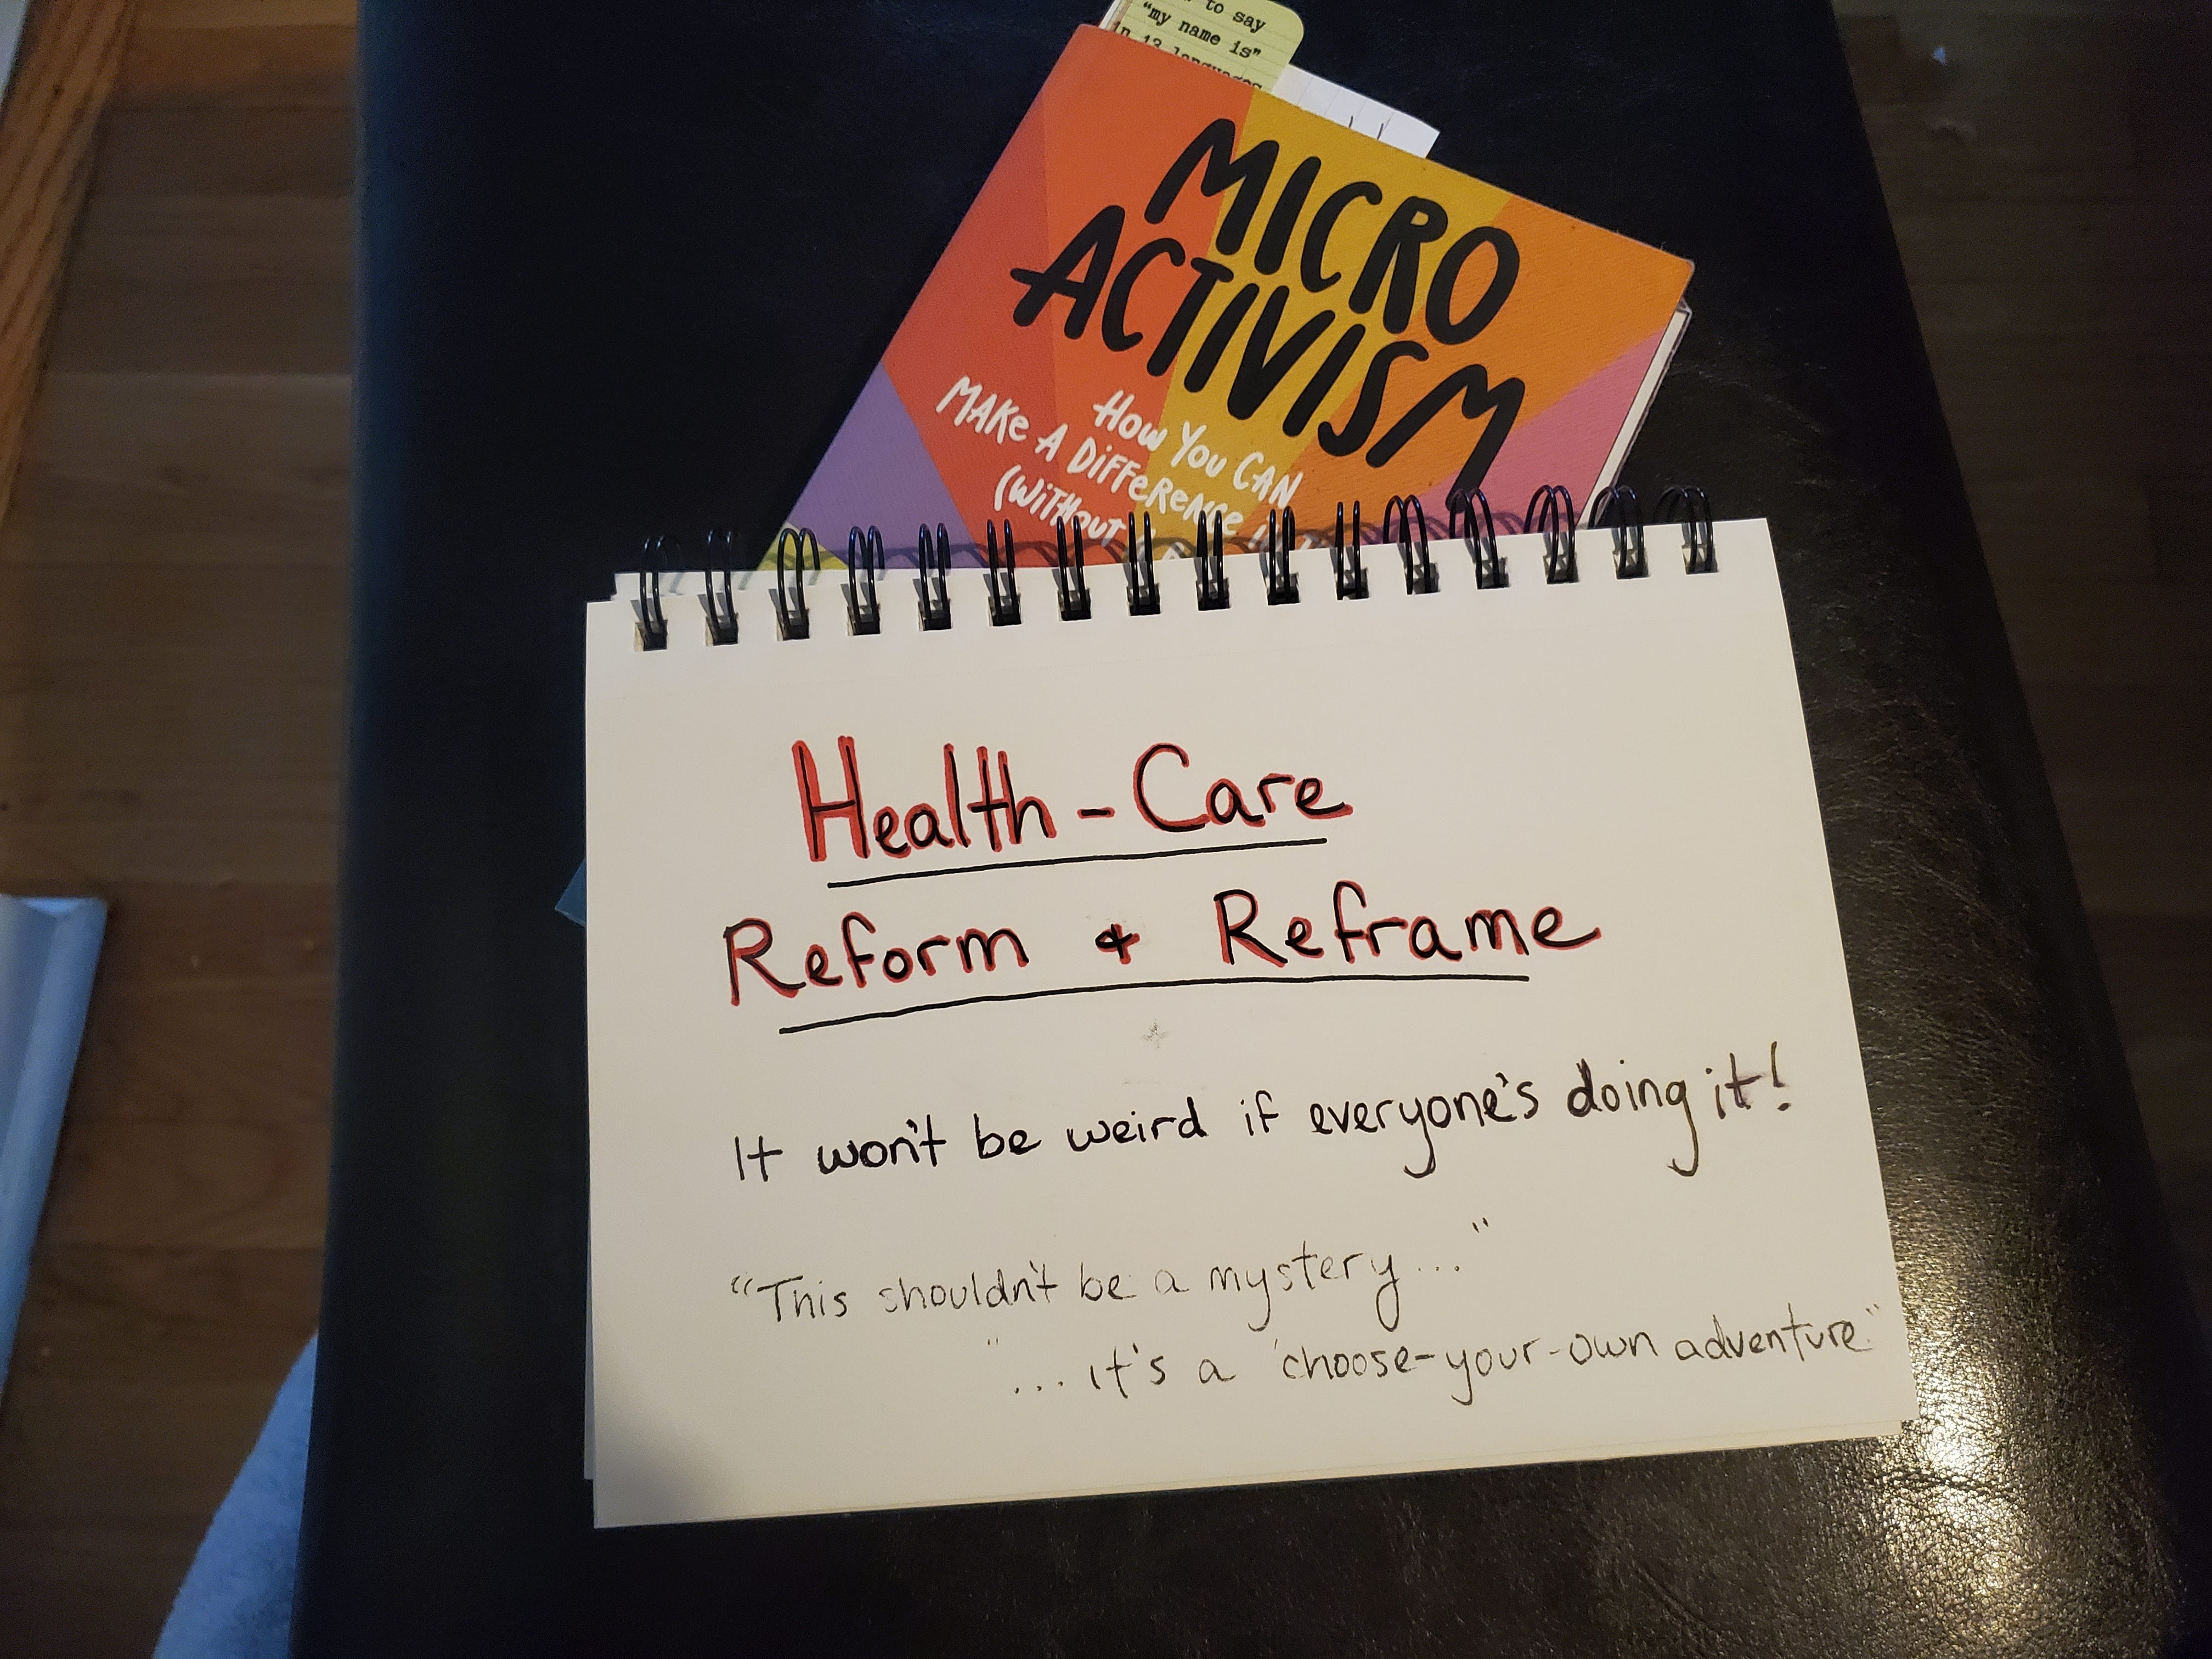 to say
"my name is"
in 13 languages
MICRO
ACTIVISM
How You CAN
MAKE A DIFFERENCE
(WITHOUT
Health-Care
Reform & Reframe
It won't be weird if everyone's doing it!
"This shouldn't be a mystery..."
"... it's a 'choose-your-own adventure"